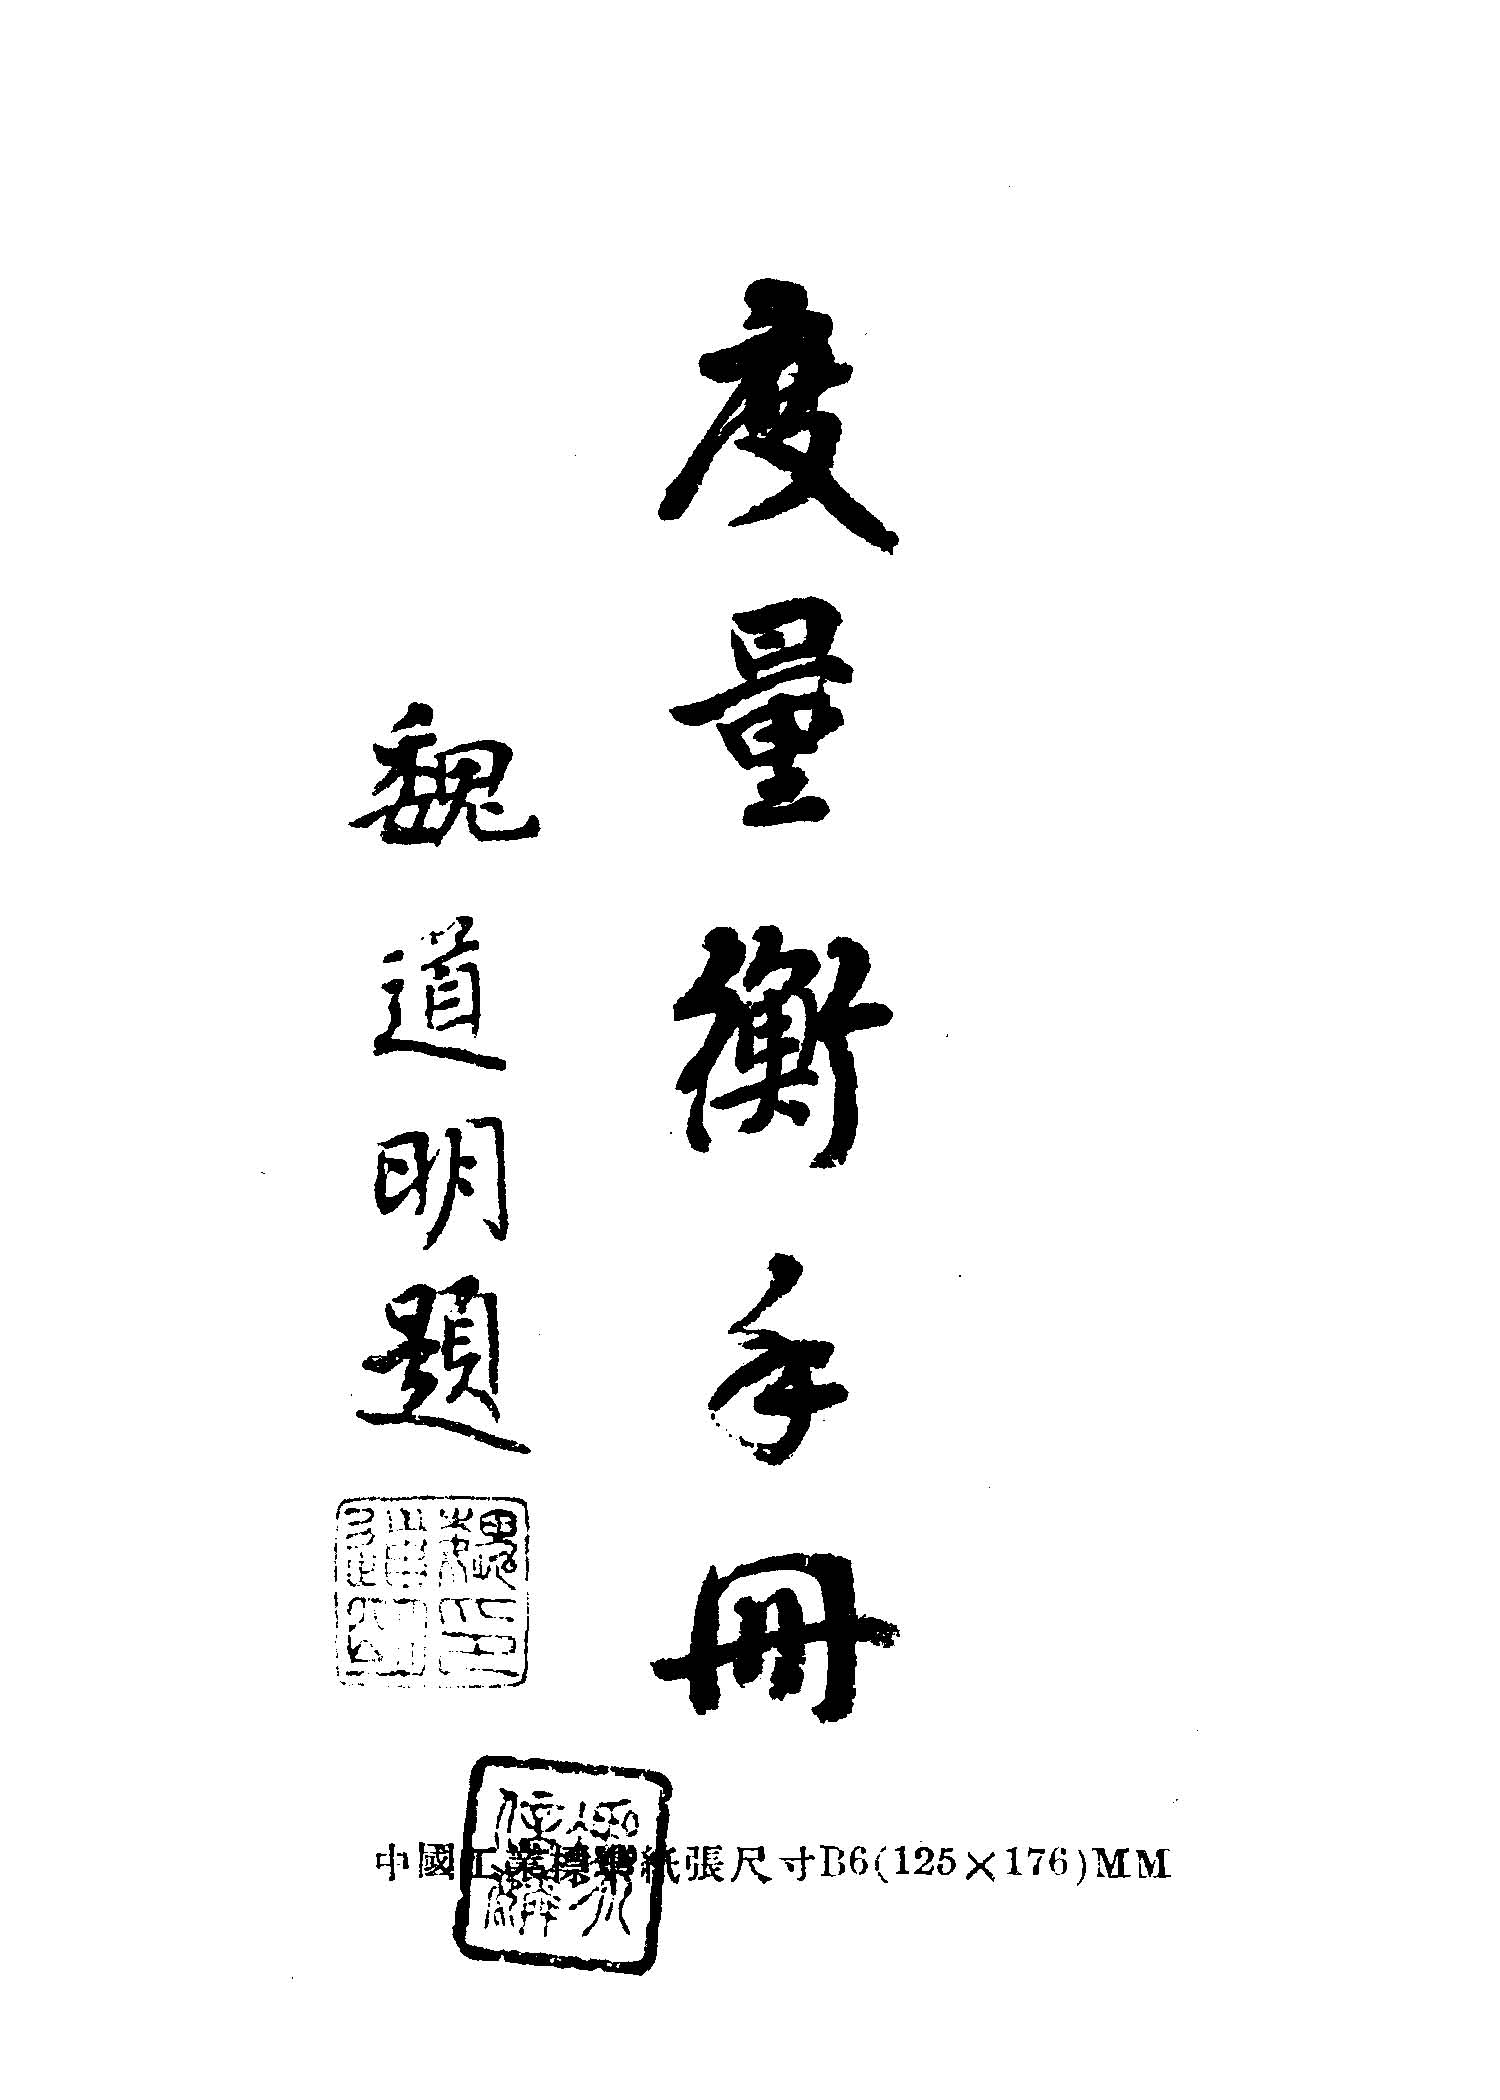 度量衡手冊
魏道明題
魏道明印
中國工業標準紙張尺寸B6(125×176)MM